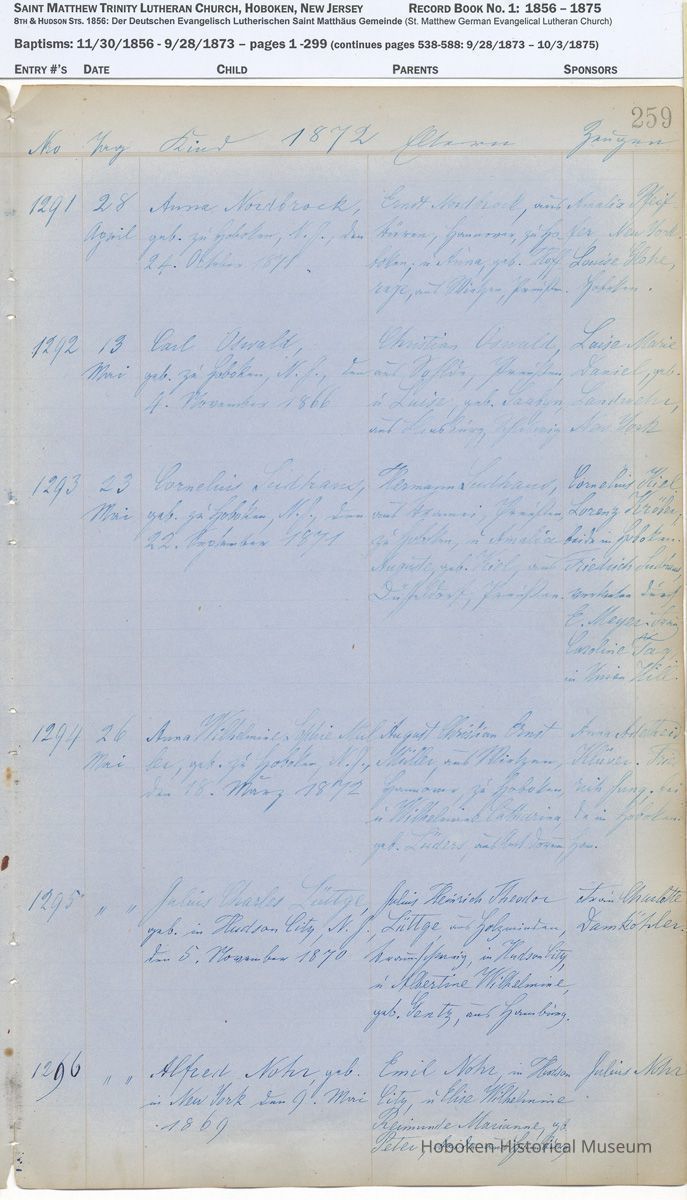 SAINT MATTHEW TRINITY LUTHERAN CHURCH, HOBOKEN, NEW JERSEY RECORD BOOK NO. 1: 1856 – 1875
8TH & HUDSON STS. 1856: Der Deutschen Evangelisch Lutherischen Saint Matthäus Gemeinde (St. Matthew German Evangelical Lutheran Church)
Baptisms: 11/30/1856 - 9/28/1873 – pages 1 -299 (continues pages 538-588: 9/28/1873 – 10/3/1875)
ENTRY #'S DATE CHILD PARENTS SPONSORS
259
No Tag Kind 1872 Eltern Zeugen
1291 28 Anna Nordbrock, Ernst Nordbrock, aus Amalia Pfeif
April geb. zu Hoboken, N. J., den Hannover, zu Ho fer New York
24. Oktober 1871. boken, u Anna, geb. Louise Hohe,
aus Wietzen, Preußen. Hoboken.
1292 13 Carl Oswald, Christian Oswald, Luise Marie
Mai geb. zu Hoboken, N. J., den aus Preußen, Daniel, geb.
4. November 1866 u Luise, geb. Landwehr,
aus New York
1293 23 Cornelius Sudhaus, Hermann Sudhaus, Cornelius Kiel
Mai geb. zu Hoboken, N. J., den aus Preußen, Lorenz Kröger,
22. September 1871 zu Hoboken, u Amalia beide in Hoboken.
Auguste, geb. Kiel, aus Friedrich Sudhaus,
Düsseldorf, Preußen. vertreten durch
E. Meyer. Frau
Caroline Tag,
in Union Hill.
1294 26 Anna Wilhelmine Sophie Mül August Christian Ernst Anna Adelheid
Mai ler, geb. zu Hoboken, N. J., Müller, aus Wietzen, Klüver. Fried
den 18. März 1872 Hannover, zu Hoboken, rich Jung. bei
u Wilhelmine Catharina, de in Hoboken.
geb. Lüders, aus Han.
1295 " " Julius Charles Lüttge, Julius Heinrich Theodor Frau Charlotte
geb. in Hudson City, N. J. Lüttge aus Holzminden, Damköhler.
den 5. November 1870 Braunschweig, in Hudson City,
u Albertine Wilhelmine,
geb. Gentz, aus Hamburg.
1296 " " Alfred Nohr, geb. Emil Nohr, in Hudson Julius Nohr
in New York den 9. Mai City, u Elise Wilhelmine
1869 Marianne, geb.
Peter,
Hoboken Historical Museum